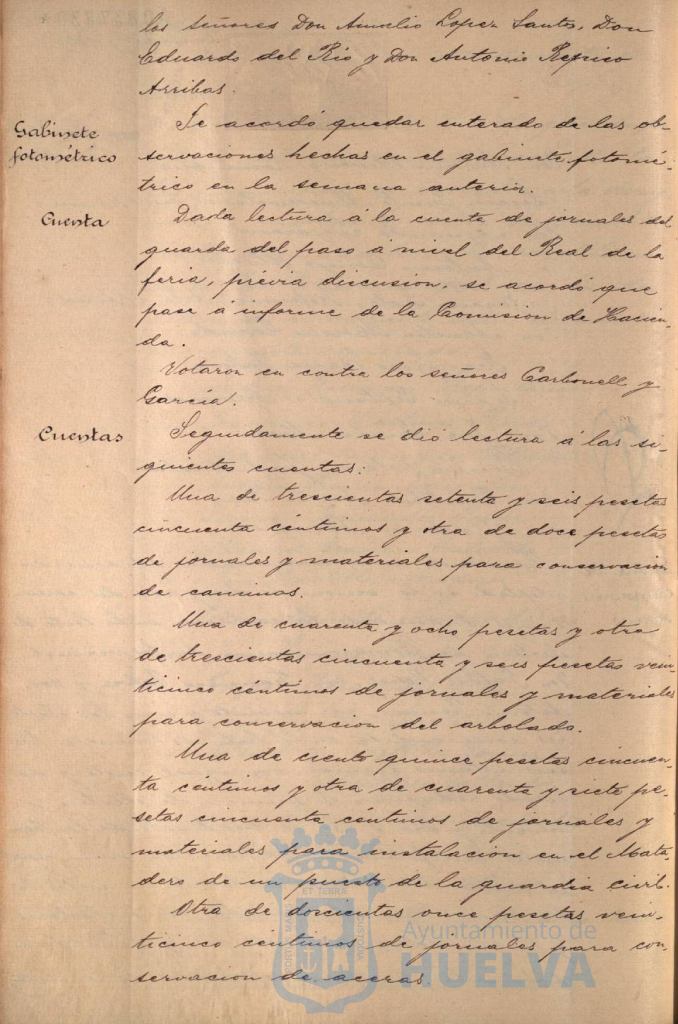 los señores Don Amelio Lopez Santos, Don
Eduardo del Rio y Don Antonio
Arribas.
Gabinete
fotométrico
Se acordó quedar enterado de las ob-
servaciones hechas en el gabinete fotomé-
trico en la semana anterior.
Cuenta
Dada lectura á la cuenta de jornales del
guarda del paso á nivel del Real de la
feria, prévia discusion, se acordó que
pase á informe de la Comision de Hacien-
da.
Votaron en contra los señores Carbonell y
García.
Cuentas
Seguidamente se dió lectura á las si-
guientes cuentas:
Una de trescientas setenta y seis pesetas
cincuenta céntimos y otra de doce pesetas
de jornales y materiales para conservacion
de caminos.
Una de cuarenta y ocho pesetas y otra
de trescientas cincuenta y seis pesetas vein-
ticinco céntimos de jornales y materiales
para conservacion del arbolado.
Una de ciento quince pesetas cincuen-
ta céntimos y otra de cuarenta y siete pe-
setas cincuenta céntimos de jornales y
materiales para instalacion en el Mata-
dero de un puesto de la guardia civil.
Otra de doscientas once pesetas vein-
ticinco céntimos de jornales para con-
servacion de aceras.
Ayuntamiento de
HUELVA